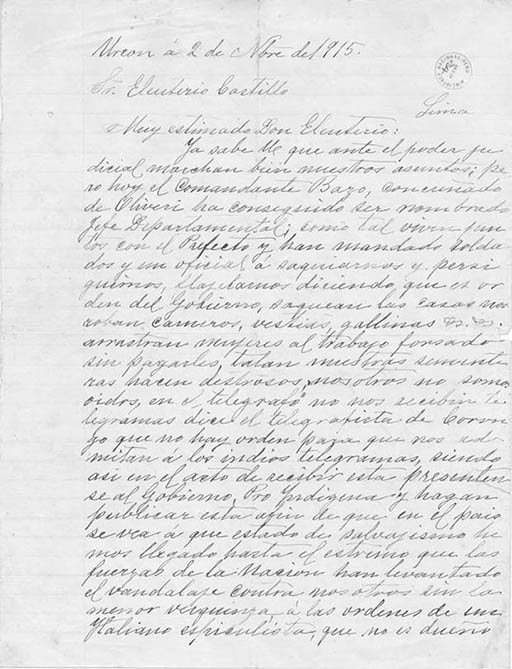 Urcon á 2 de Nbre de 1915.
Sr. Eleuterio Castillo
Lima
Muy estimado Don Eleuterio:
Ya sabe U que ante el poder ju
dicial marchan bien nuestros asuntos; pe
ro hoy el Comandante Bazo, concuñado
de Oliveri ha conseguido ser nombrado
Jefe Departamental; como tal viven jun
tos con el Prefecto y han mandado solda
dos y un oficial á saquiarnos y persi
guirnos, flajelarnos diciendo, que es or
den del Gobierno, saquean las casas nos
roban carneros, vestias, gallinas &. &.
arrastran mujeres al trabajo forsado
sin pagarles, talan nuestras semente
ras hacen destrosos, nosotros no somos
oidos, en el telegrafo no nos reciben te
legramas dice el telegrafista de Coron
go que no hay orden para que nos ad
mitan á los indios telegramas, siendo
asi en el acto de recibir esta presenten
se al Gobierno, Pro Indigena y hagan
publicar esta afin de que en el pais
se vea á que estado de salvajismo he
mos llegado hasta el estremo que las
fuerzas de la Nacion han levantado
el vandalaje contra nosotros sin la
menor verguenza á las ordenes de un
Italiano espiculista, que no es dueño